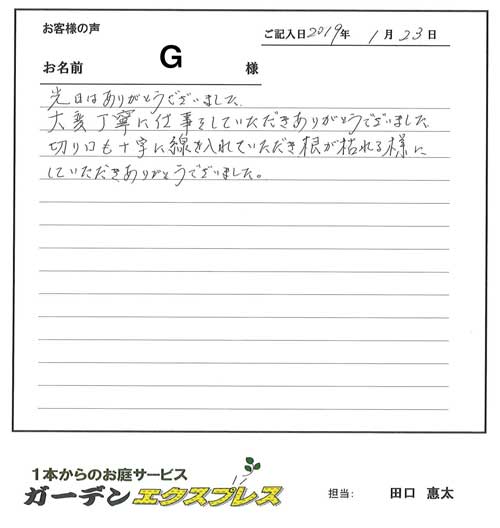 お客様の声
ご記入日2019年 1月23日
お名前 G 様
先日はありがとうございました。
大変丁寧に仕事をしていただきありがとうございました
切り口も十字に線を入れていただき根が枯れる様に
していただきありがとうございました。
1本からのお庭サービス
ガーデンエクスプレス
担当: 田口 惠太